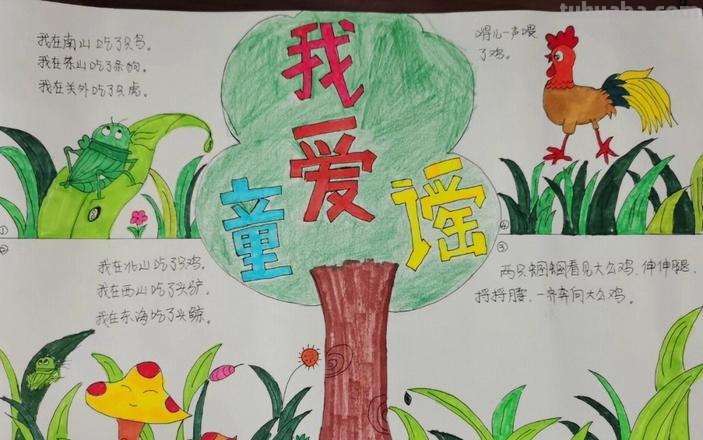 tuhuaba.com
我在南山吃了只鸟。
我在东山吃了条狗。
我在关外吃了只虎。
①
我爱童谣
嘚儿一声喂
了鸡。
④
②
我在北山吃了只鸡。
我在西山吃了头驴。
我在东海吃了头鲸。
③
两只蝈蝈看见大公鸡,伸伸腿,
捋捋腰,一齐奔向大公鸡。